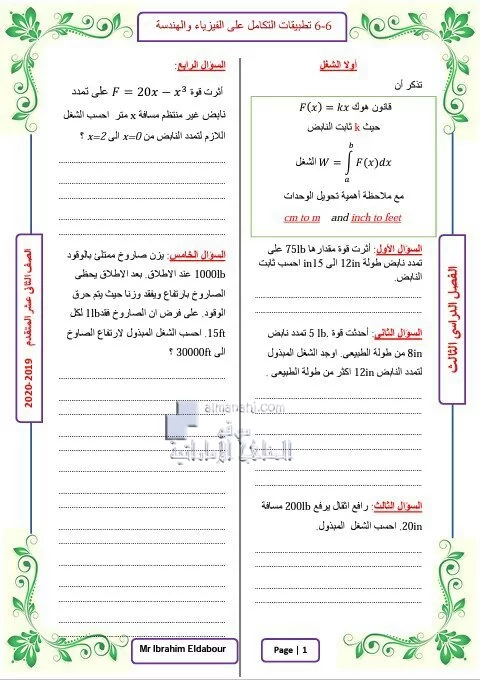 6-6 تطبيقات التكامل على الفيزياء والهندسة
أولا الشغل
تذكر أن
قانون هوك F(x) = kx
حيث k ثابت النابض
الشغل W = ∫_a^b F(x)dx
مع ملاحظة أهمية تحويل الوحدات
cm to m and inch to feet
السؤال الأول: أثرت قوة مقدارها 75lb على
تمدد نابض طولة 12in الى 15in احسب ثابت
النابض.
السؤال الثاني: أحدثت قوة 5 lb. تمدد نابض
8in من طولة الطبيعى. اوجد الشغل المبذول
لتمدد النابض 12in اكثر من طولة الطبيعى .
السؤال الثالث: رافع اثقال يرفع 200lb مسافة
20in. احسب الشغل المبذول.
السؤال الرابع:
أثرت قوة F = 20x − x³ على تمدد
نابض غير منتظم مسافة x متر احسب الشغل
اللازم لتمدد النابض من x=0 الى x=2 ؟
السؤال الخامس: يزن صاروخ ممتلئ بالوقود
1000lb عند الاطلاق. بعد الاطلاق يحظى
الصاروخ بارتفاع ويفقد وزنا حيث يتم حرق
الوقود. على فرض ان الصاروخ فقد 1lb لكل
15ft. احسب الشغل المبذول لارتفاع الصاوخ
الى 30000ft ؟
الفصل الدراسي الثالث
الصف الثانى عشر المتقدم 2019-2020
almanahj.com
موقع
المناهج الإماراتية
Mr Ibrahim Eldabour
Page | 1